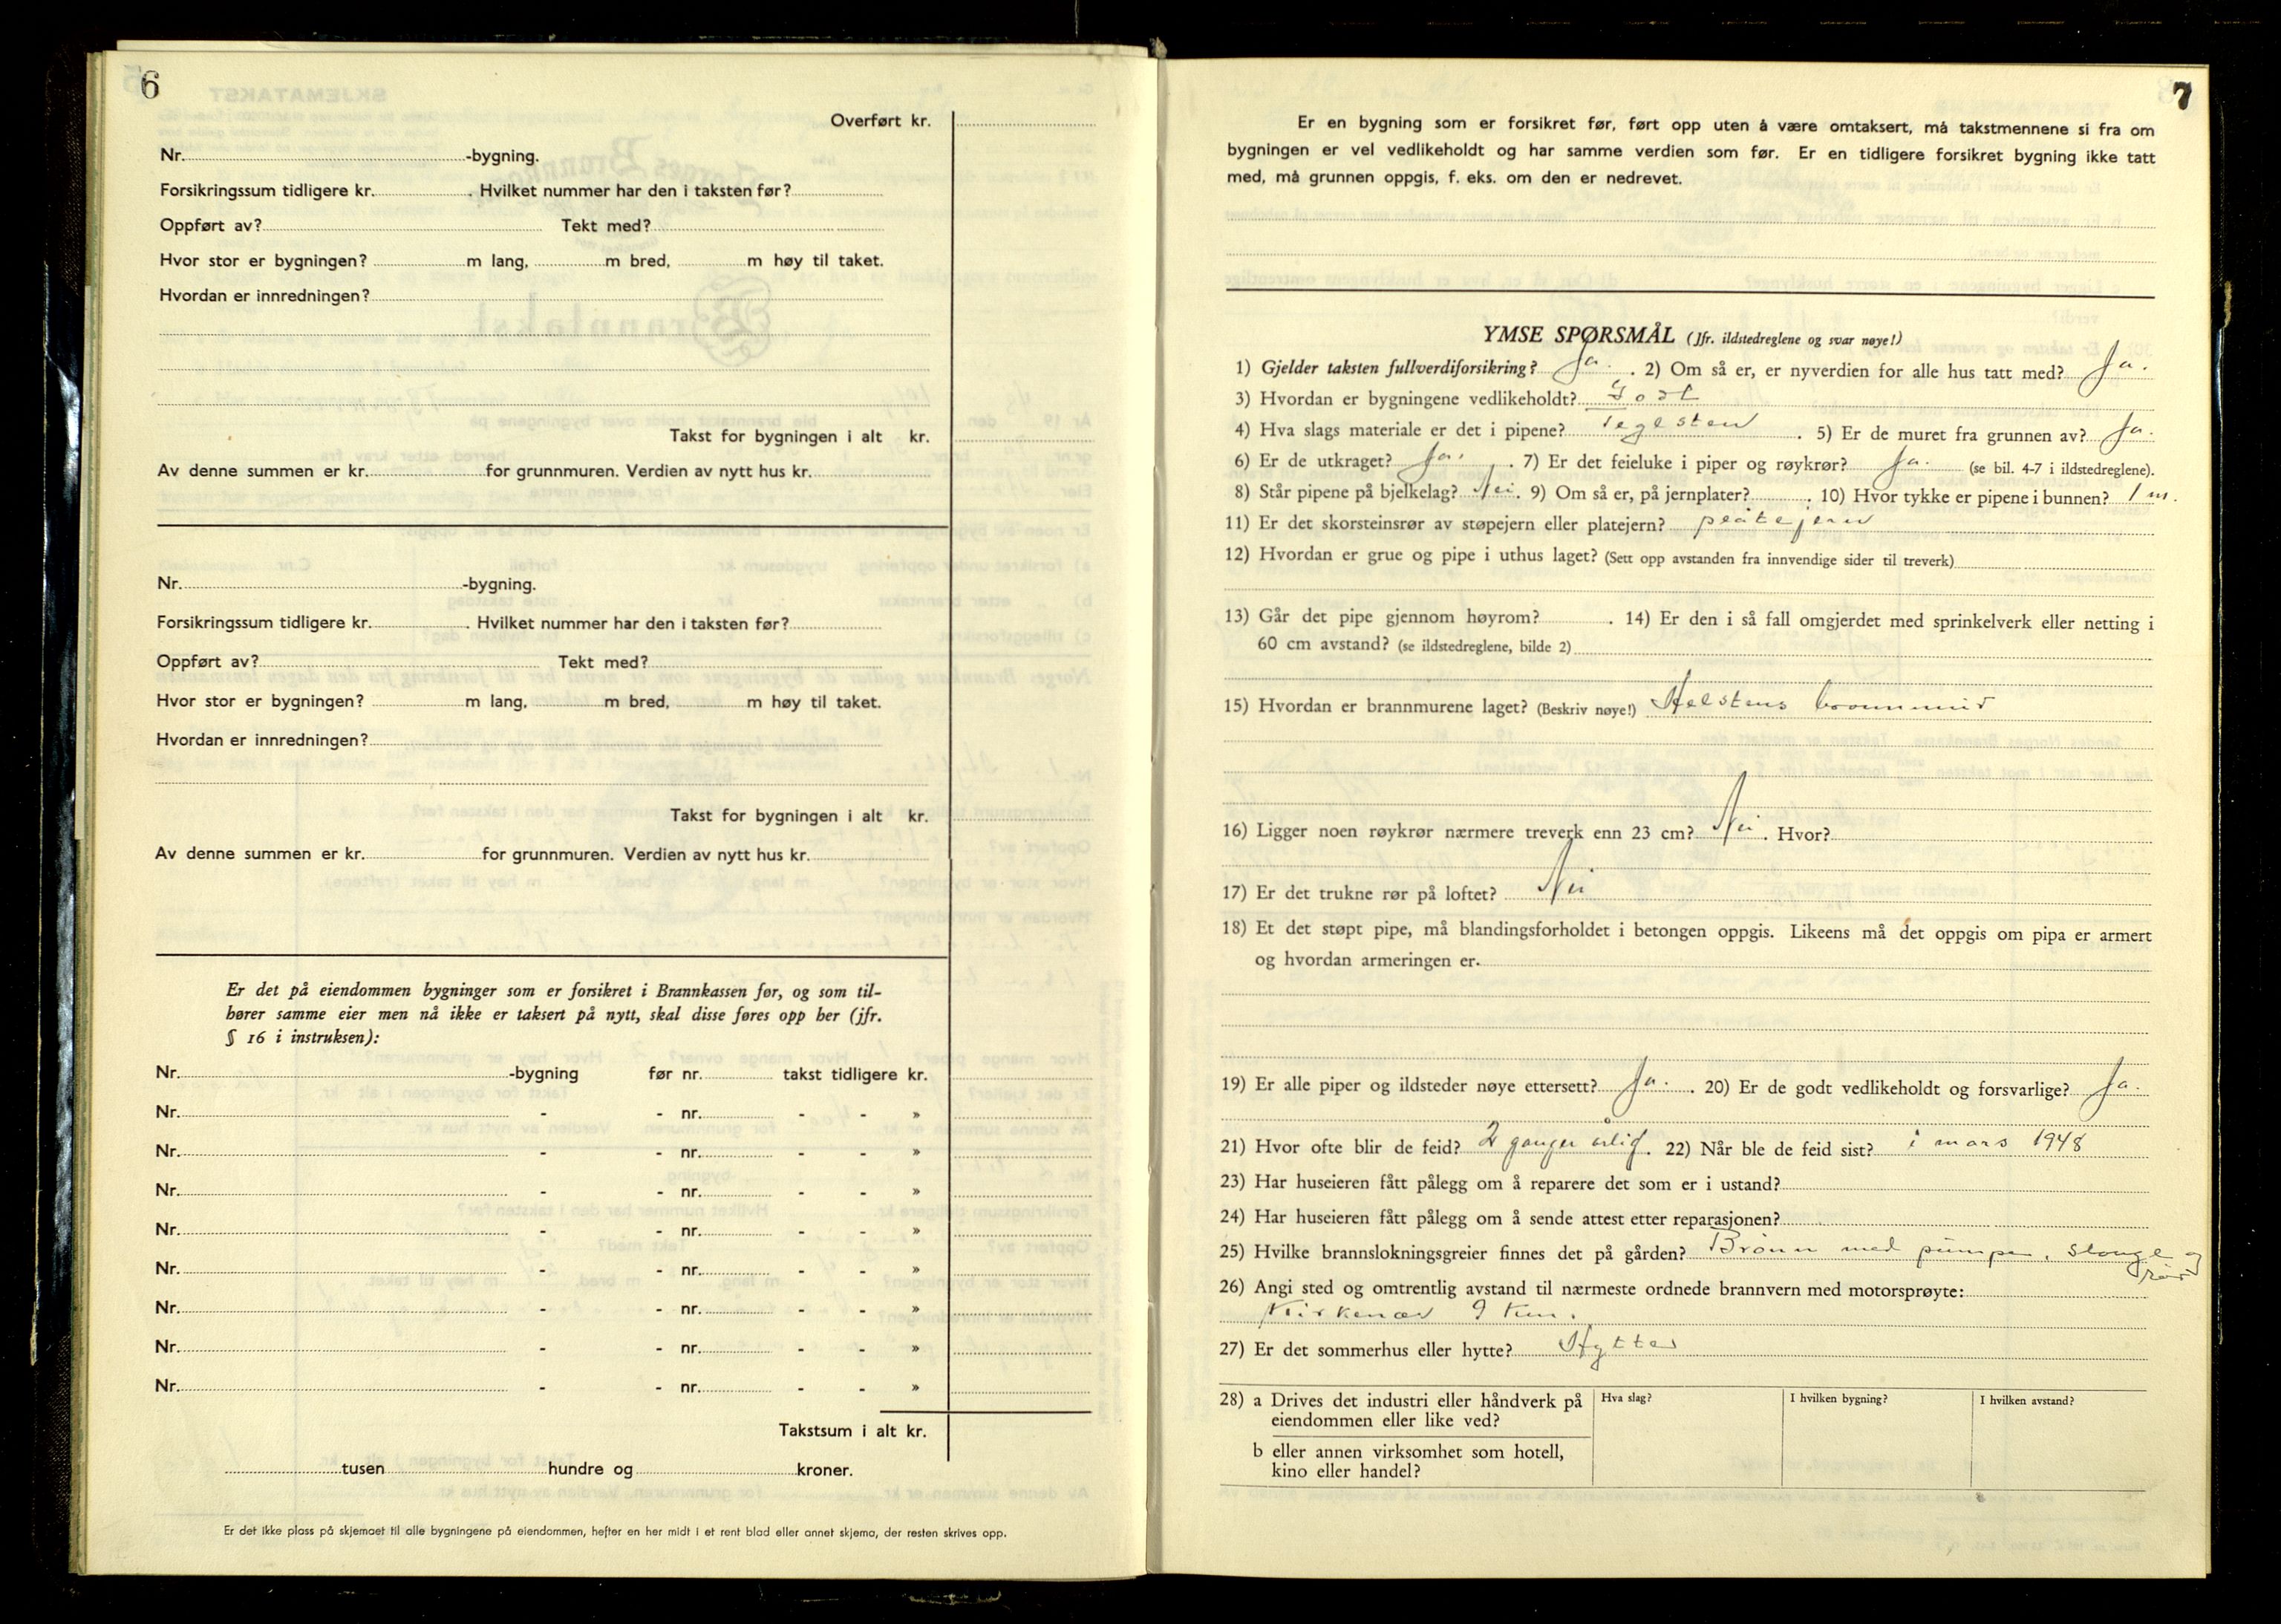 6
Overført kr.
Nr. -bygning.
Forsikringssum tidligere kr. . Hvilket nummer har den i taksten før?
Oppført av? Tekt med?
Hvor stor er bygningen? m lang, m bred, m høy til taket.
Hvordan er innredningen?
Takst for bygningen i alt kr.
Av denne summen er kr. for grunnmuren. Verdien av nytt hus kr.
Nr. -bygning.
Forsikringssum tidligere kr. . Hvilket nummer har den i taksten før?
Oppført av? Tekt med?
Hvor stor er bygningen? m lang, m bred, m høy til taket.
Hvordan er innredningen?
Takst for bygningen i alt kr.
Av denne summen er kr. for grunnmuren. Verdien av nytt hus kr.
Er det på eiendommen bygninger som er forsikret i Brannkassen før, og som til-
hører samme eier men nå ikke er taksert på nytt, skal disse føres opp her (jfr.
§ 16 i instruksen):
Nr. -bygning før nr. takst tidligere kr.
Nr. - - nr. - - »
Nr. - - nr. - - »
Nr. - - nr. - - »
Nr. - - nr. - - »
Nr. - - nr. - - »
Nr. - - nr. - - »
Nr. - - nr. - - »
Nr. - - nr. - - »
Takstsum i alt kr.
tusen hundre og kroner.
Er det ikke plass på skjemaet til alle bygningene på eiendommen, hefter en her midt i et rent blad eller annet skjema, der resten skrives opp.
7
Er en bygning som er forsikret før, ført opp uten å være omtaksert, må takstmennene si fra om
bygningen er vel vedlikeholdt og har samme verdien som før. Er en tidligere forsikret bygning ikke tatt
med, må grunnen oppgis, f. eks. om den er nedrevet.
YMSE SPØRSMÅL (Jfr. ildstedreglene og svar nøye!)
1) Gjelder taksten fullverdiforsikring? Ja. . 2) Om så er, er nyverdien for alle hus tatt med? Ja.
3) Hvordan er bygningene vedlikeholdt? Godt
4) Hva slags materiale er det i pipene? Teglsten . 5) Er de muret fra grunnen av? Ja.
6) Er de utkraget? Ja. . 7) Er det feieluke i piper og røykrør? Ja. (se bil. 4-7 i ildstedreglene).
8) Står pipene på bjelkelag? Nei . 9) Om så er, på jernplater? . 10) Hvor tykke er pipene i bunnen? 1 m.
11) Er det skorsteinsrør av støpejern eller platejern? platejern
12) Hvordan er grue og pipe i uthus laget? (Sett opp avstanden fra innvendige sider til treverk)
13) Går det pipe gjennom høyrom? . 14) Er den i så fall omgjerdet med sprinkelverk eller netting i
60 cm avstand? (se ildstedreglene, bilde 2)
15) Hvordan er brannmurene laget? (Beskriv nøye!) Helstens brannmur
16) Ligger noen røykrør nærmere treverk enn 23 cm? Nei . Hvor?
17) Er det trukne rør på loftet? Nei
18) Et det støpt pipe, må blandingsforholdet i betongen oppgis. Likeens må det oppgis om pipa er armert
og hvordan armeringen er.
19) Er alle piper og ildsteder nøye ettersett? Ja. . 20) Er de godt vedlikeholdt og forsvarlige? Ja.
21) Hvor ofte blir de feid? 2 ganger årlig . 22) Når ble de feid sist? i mars 1948
23) Har huseieren fått pålegg om å reparere det som er i ustand?
24) Har huseieren fått pålegg om å sende attest etter reparasjonen?
25) Hvilke brannslokningsgreier finnes det på gården? Brønn med pumpe, slange og
rør
26) Angi sted og omtrentlig avstand til nærmeste ordnede brannvern med motorsprøyte:
Kirkenær 9 km.
27) Er det sommerhus eller hytte? Hytter
28) a Drives det industri eller håndverk på
eiendommen eller like ved?
b eller annen virksomhet som hotell,
kino eller handel?
Hva slag?
I hvilken bygning?
I hvilken avstand?